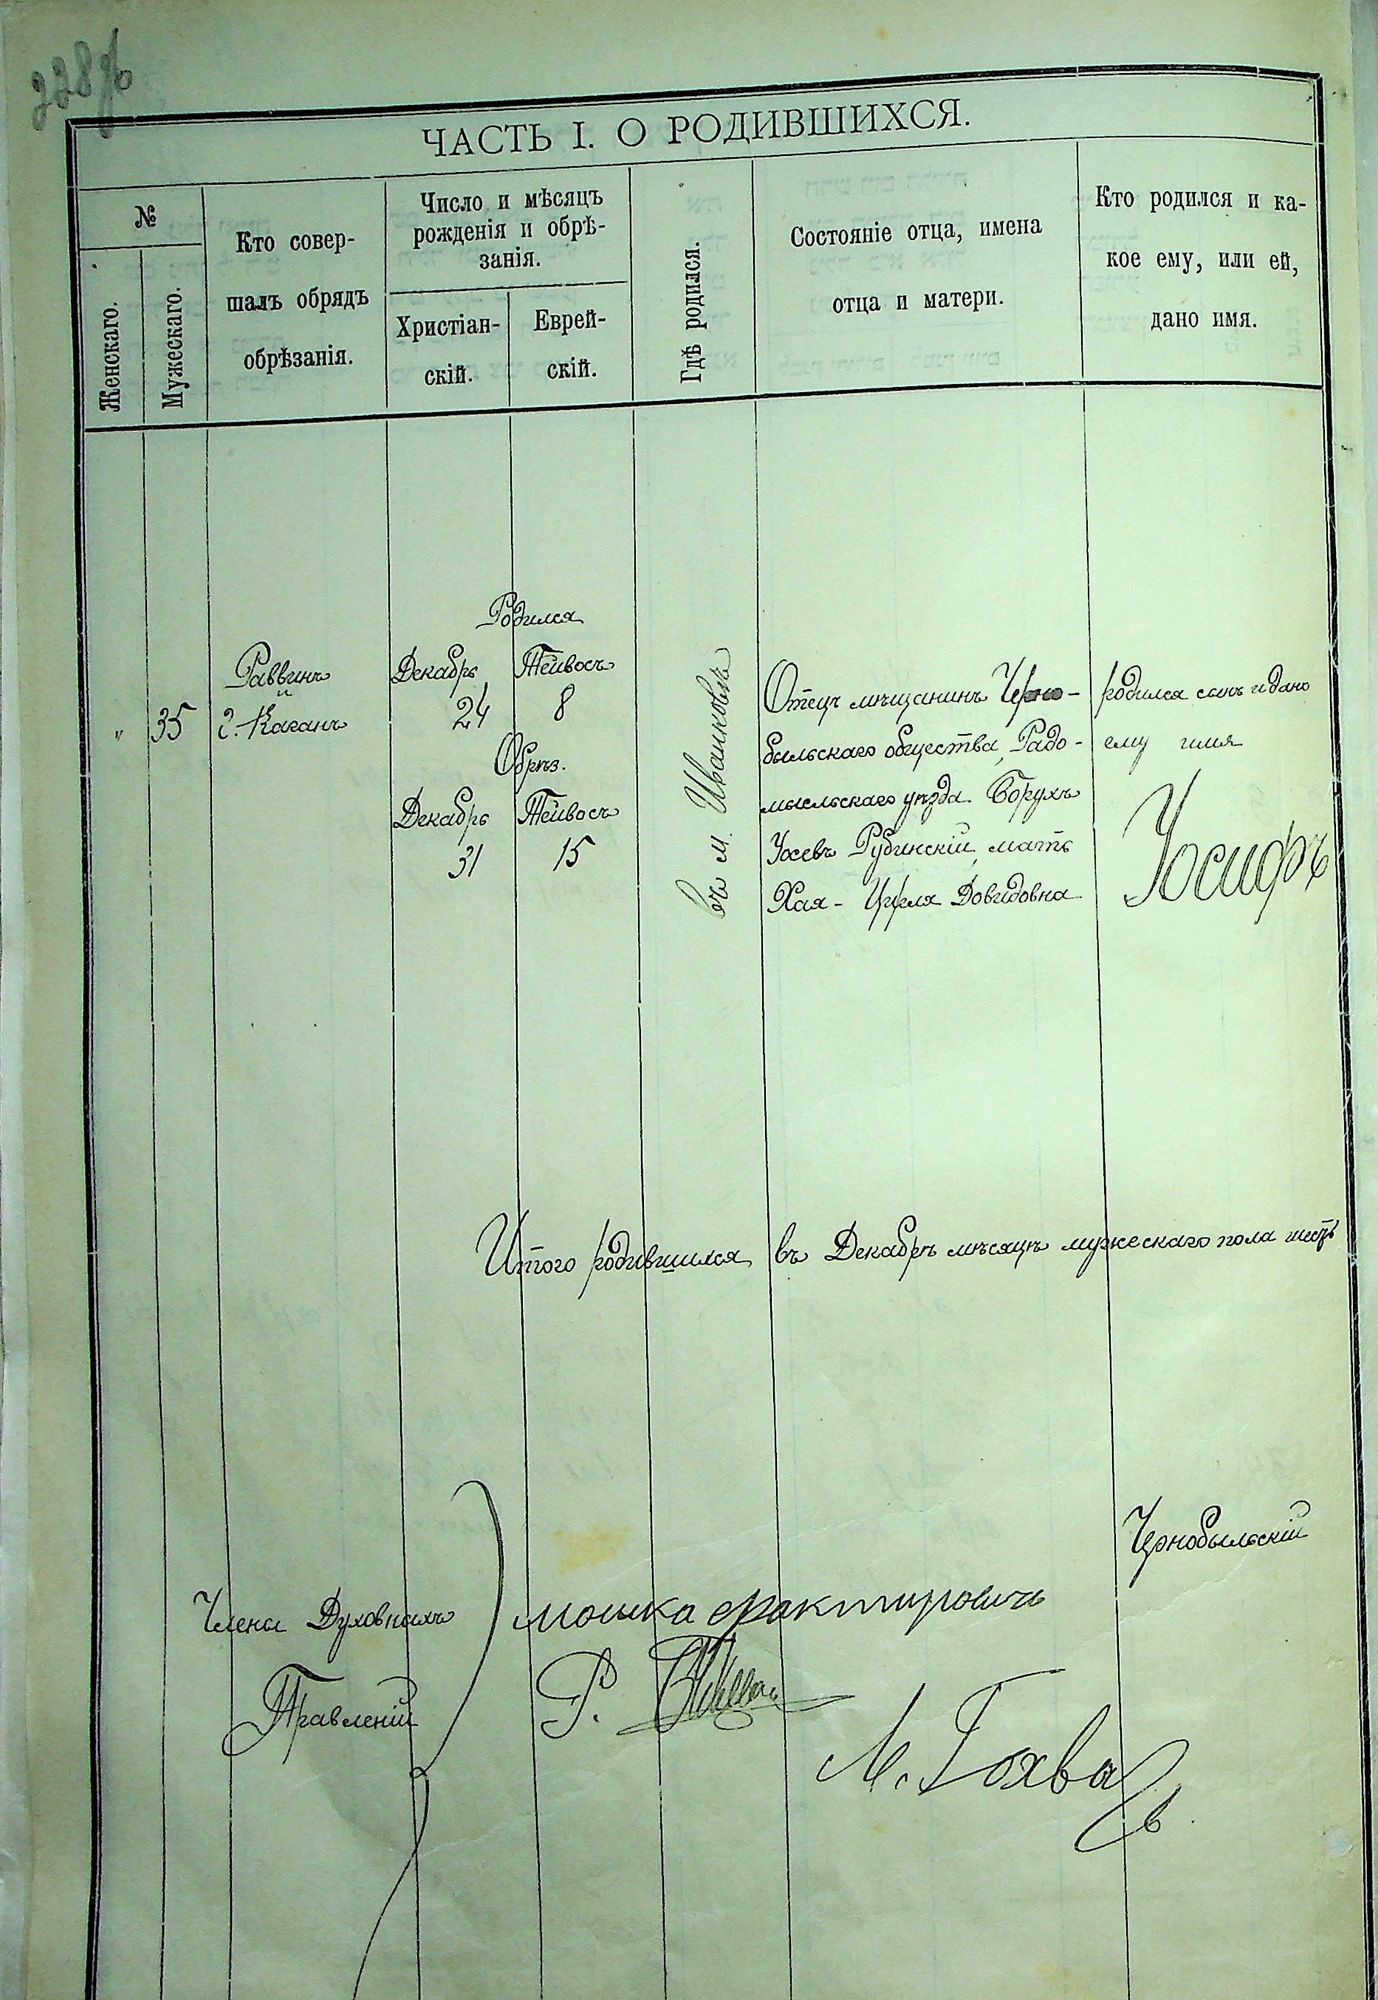 228об
ЧАСТЬ I. О РОДИВШИХСЯ.
№
Женскаго.
Мужескаго.
Кто совер-
шалъ обрядъ
обрѣзанія.
Число и мѣсяцъ
рожденія и обрѣ-
занія.
Христіан-
скій.
Еврей-
скій.
Гдѣ родился.
Состояніе отца, имена
отца и матери.
Кто родился и ка-
кое ему, или ей,
дано имя.
"
35
Раввинъ
и
г. Каганъ
Родился
Декабрь
24
Тейвосъ
8
Обрѣз.
Декабрь
31
Тейвосъ
15
въ м. Иванковѣ
Отецъ мѣщанинъ Черно-
быльскаго общества, Радо-
мысльскаго уѣзда Борухъ
Іосевъ Рубинскій, мать
Хая - Цифля Довидовна
родился сынъ и дано
ему имя
Іосифъ
Итого родившихся въ Декабрѣ мѣсяцѣ мужескаго пола шесть
Чернобыльскій
Члены Духовныхъ
Правленій
мошка факторовичъ
Р.
М. Гохва